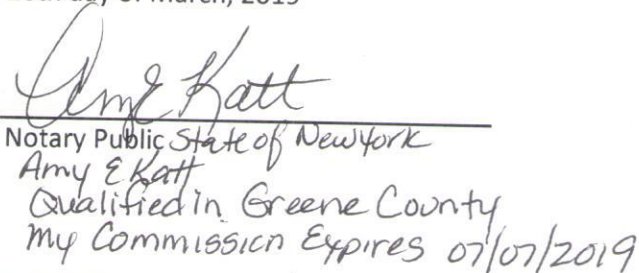 day of March, 2019
Amy E Katt
Notary Public State of New York
Amy E Katt
Qualified in Greene County
My Commission Expires 07/07/2019